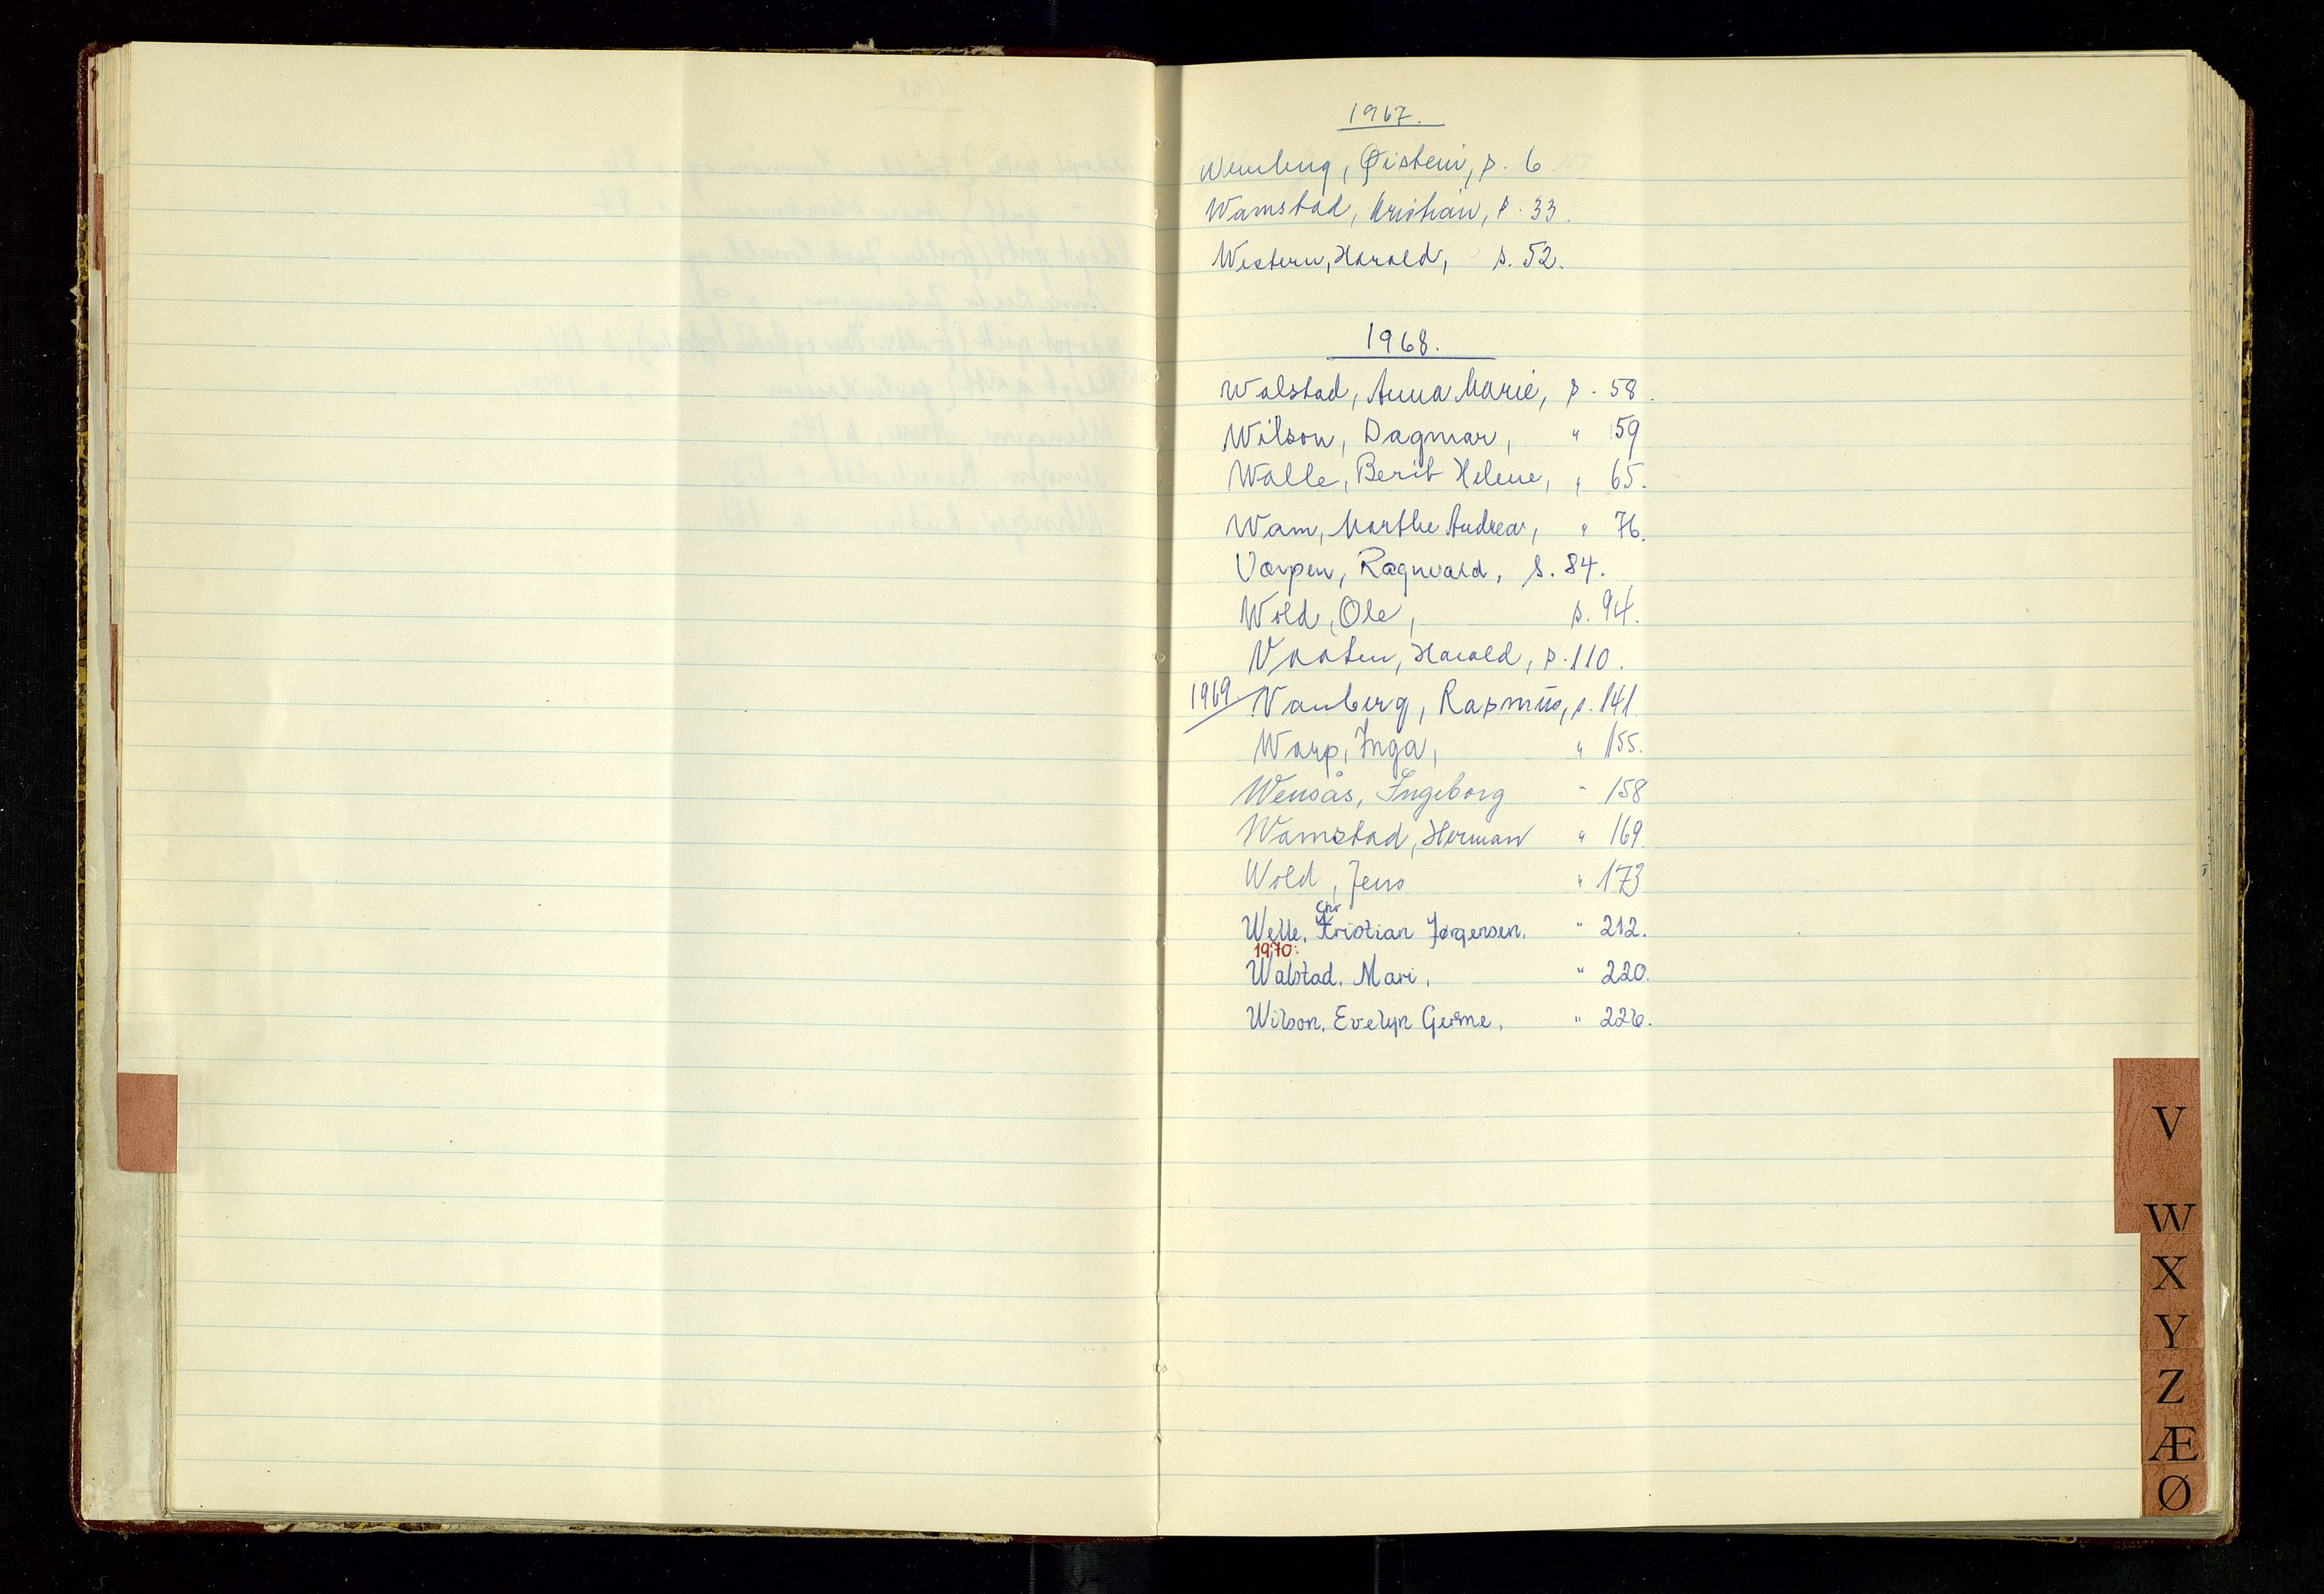 1967.
Wemberg, Øistein, s. 6
Wamstad, Kristian, s. 33.
Western, Harald, s. 52.
1968.
Walstad, Anna Marie, s. 58.
Wilson, Dagmar, " 59
Walle, Berit Helene, " 65.
Wam, Marthe Andrea, " 76.
Varpen, Ragnvald, s. 84.
Wold, Ole, s. 94.
Harald, s. 110.
1969. Vamberg, Rasmus, s. 141.
Warp, Inga, " 155.
Wensås, Ingeborg " 158
Wamstad, Herman " 169.
Wold, Jens " 173
Chr
Welle. Kristian Jørgensen. " 212.
1970:
Walstad. Mari, " 220.
Wilson. Evelyn " 226.
V
W
X
Y
Z
Æ
Ø